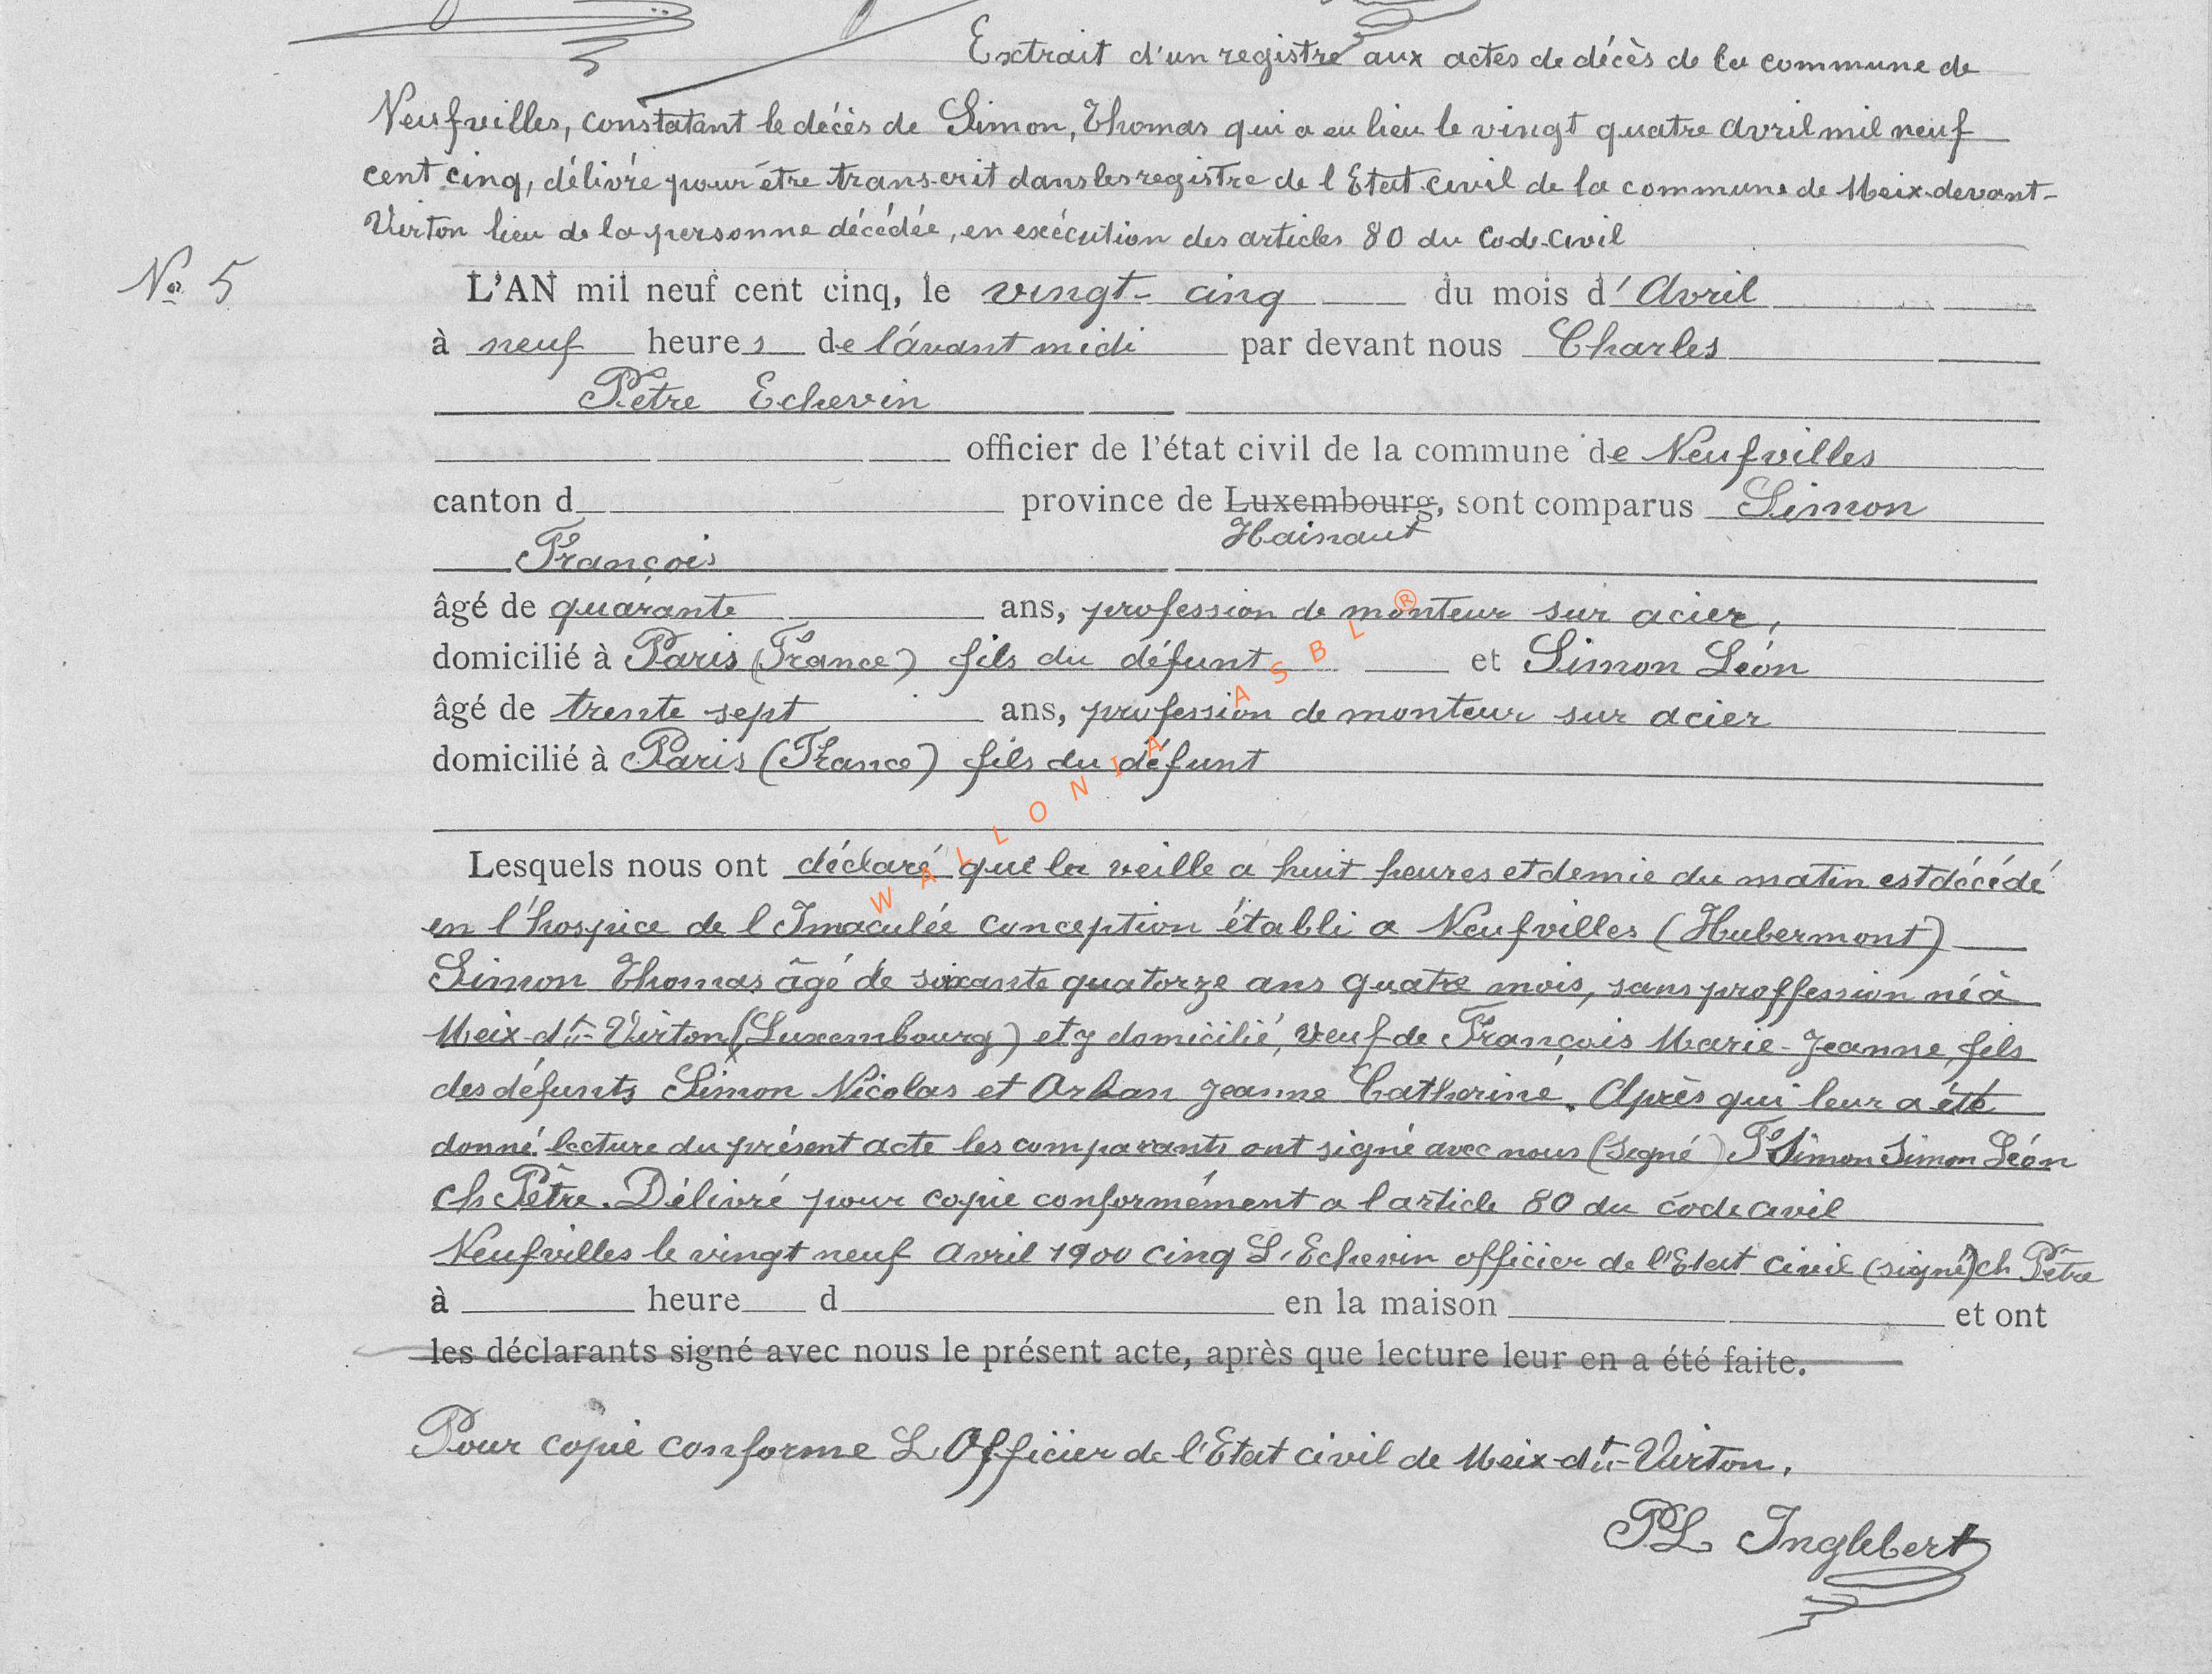 Extrait d'un registre aux actes de décès de la commune de
Neufvilles, constatant le décès de Simon, Thomas qui a eu lieu le vingt quatre avril mil neuf
cent cinq, délivré pour être transcrit dans les registre de l'Etat civil de la commune de Meix-devant-
Virton lieu de la personne décédée, en exécution des articles 80 du Code civil
No 5
L'AN mil neuf cent cinq, le vingt-cinq du mois d'Avril
à neuf heures de l'avant midi par devant nous Charles
Pêtre Echevin
officier de l'état civil de la commune de Neufvilles
canton d province de Luxembourg, sont comparus Simon
Hainaut
François
âgé de quarante ans, profession de monteur sur acier,
domicilié à Paris (France) fils du défunt et Simon Léon
âgé de trente sept ans, profession de monteur sur acier
domicilié à Paris (France) fils du défunt
Lesquels nous ont déclaré que la veille a huit heures et demie du matin est décédé
en l'hospice de l Imaculée conception établi a Neufvilles (Hubermont)
Simon Thomas âgé de soixante quatorze ans quatre mois, sans proffession né à
Meix-dt-Virton (Luxembourg) et y domicilié, veuf de François Marie-Jeanne, fils
des défunts Simon Nicolas et Arlan Jeanne Catherine. Après qui leur a été
donné lecture du présent acte les comparants ont signé avec nous (Signé) F Simon Simon Léon
ch Pêtre. Délivré pour copie conformément a l article 80 du code civil
Neufvilles le vingt neuf Avril 1900 cinq L'Echevin officier de l'Etat civil (signé) ch Pêtre
à heure d en la maison et ont
les déclarants signé avec nous le présent acte, après que lecture leur en a été faite.
Pour copie conforme L Officier de l'Etat civil de Meix-dt-Virton.
PL Inglebert
WALLONIA ASBL ®